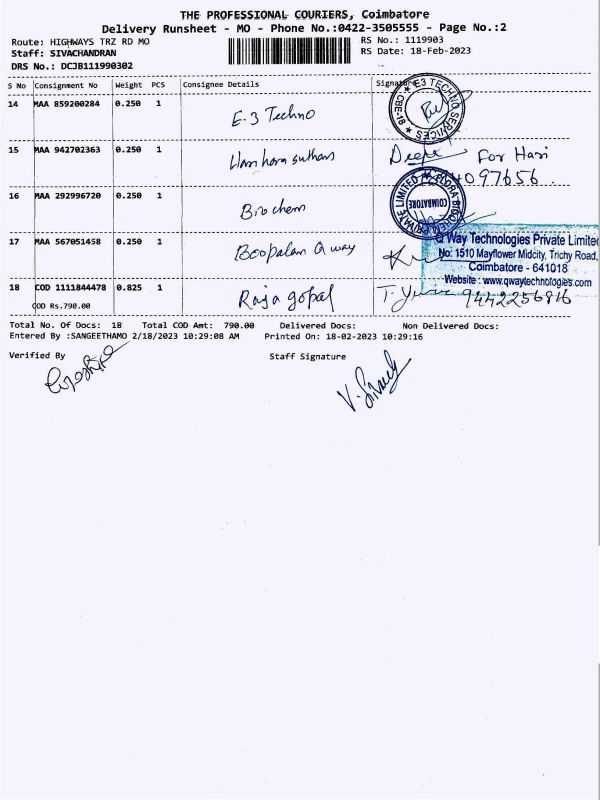 THE PROFESSIONAL COURIERS, Coimbatore
Delivery Runsheet - MO - Phone No.:0422-3505555 - Page No.:2
Route: HIGHWAYS TRZ RD MO
RS No.: 1119903
Staff: SIVACHANDRAN
RS Date: 18-Feb-2023
DRS No.: DCJB111990302
S No Consignment No Weight PCS Consignee Details Signature
14 MAA 859200284 0.250 1 E.3 Techno
E3 TECHNO SERVICES * CBE-18 *
15 MAA 942702363 0.250 1 Harihara suthan Deepa For Hari
16 MAA 292996720 0.250 1 Biochem
PRIVATE LIMITED COIMBATORE
17 MAA 567051458 0.250 1 Boopalam Q way
Q Way Technologies Private Limited
No: 1510 Mayflower Midcity, Trichy Road,
Coimbatore - 641018
Website : www.qwaytechnologies.com
18 COD 1111844478 0.825 1 Raja gopal 9442256816
COD Rs.790.00
Total No. Of Docs: 18 Total COD Amt: 790.00 Delivered Docs: Non Delivered Docs:
Entered By :SANGEETHAMO 2/18/2023 10:29:08 AM Printed On: 18-02-2023 10:29:16
Verified By Staff Signature
V. Sivach